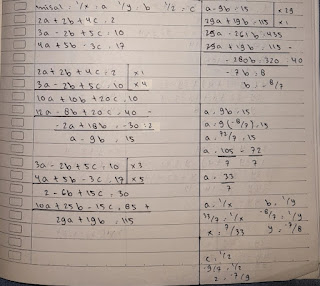 misal : 1/x : a 1/y : b 1/z = c
2a + 2b + 4c : 2
3a - 2b + 5c : 10
4a + 5b - 3c : 17
2a + 2b + 4c : 2 | x 1
3a - 2b + 5c : 10 | x 4
10a + 10b + 20c : 10
12a - 8b + 20c : 40 -
-2a + 18b : -30 : 2
a - 9b : 15
3a - 2b + 5c : 10 | x 3
4a + 5b - 3c : 17 | x 5
- 6b + 15c : 30
10a + 25b - 15c : 85 +
29a + 19b : 115
a - 9b : 15 | x 29
29a + 19b : 115 | x 1
29a - 261b : 435
29a + 19b : 115 -
- 280b : 320 : 40
- 7b : 8
b : -8/7
a - 9b : 15
a - 9 (-8/7) : 15
a + 72/7 : 15
a : 105 - 72
7 7
a : 33
7
a : 1/x b : 1/y
33/7 : 1/x -8/7 : 1/y
x : 7/33 y : -7/8
c : 1/z
-9/7 : 1/z
z : -7/9